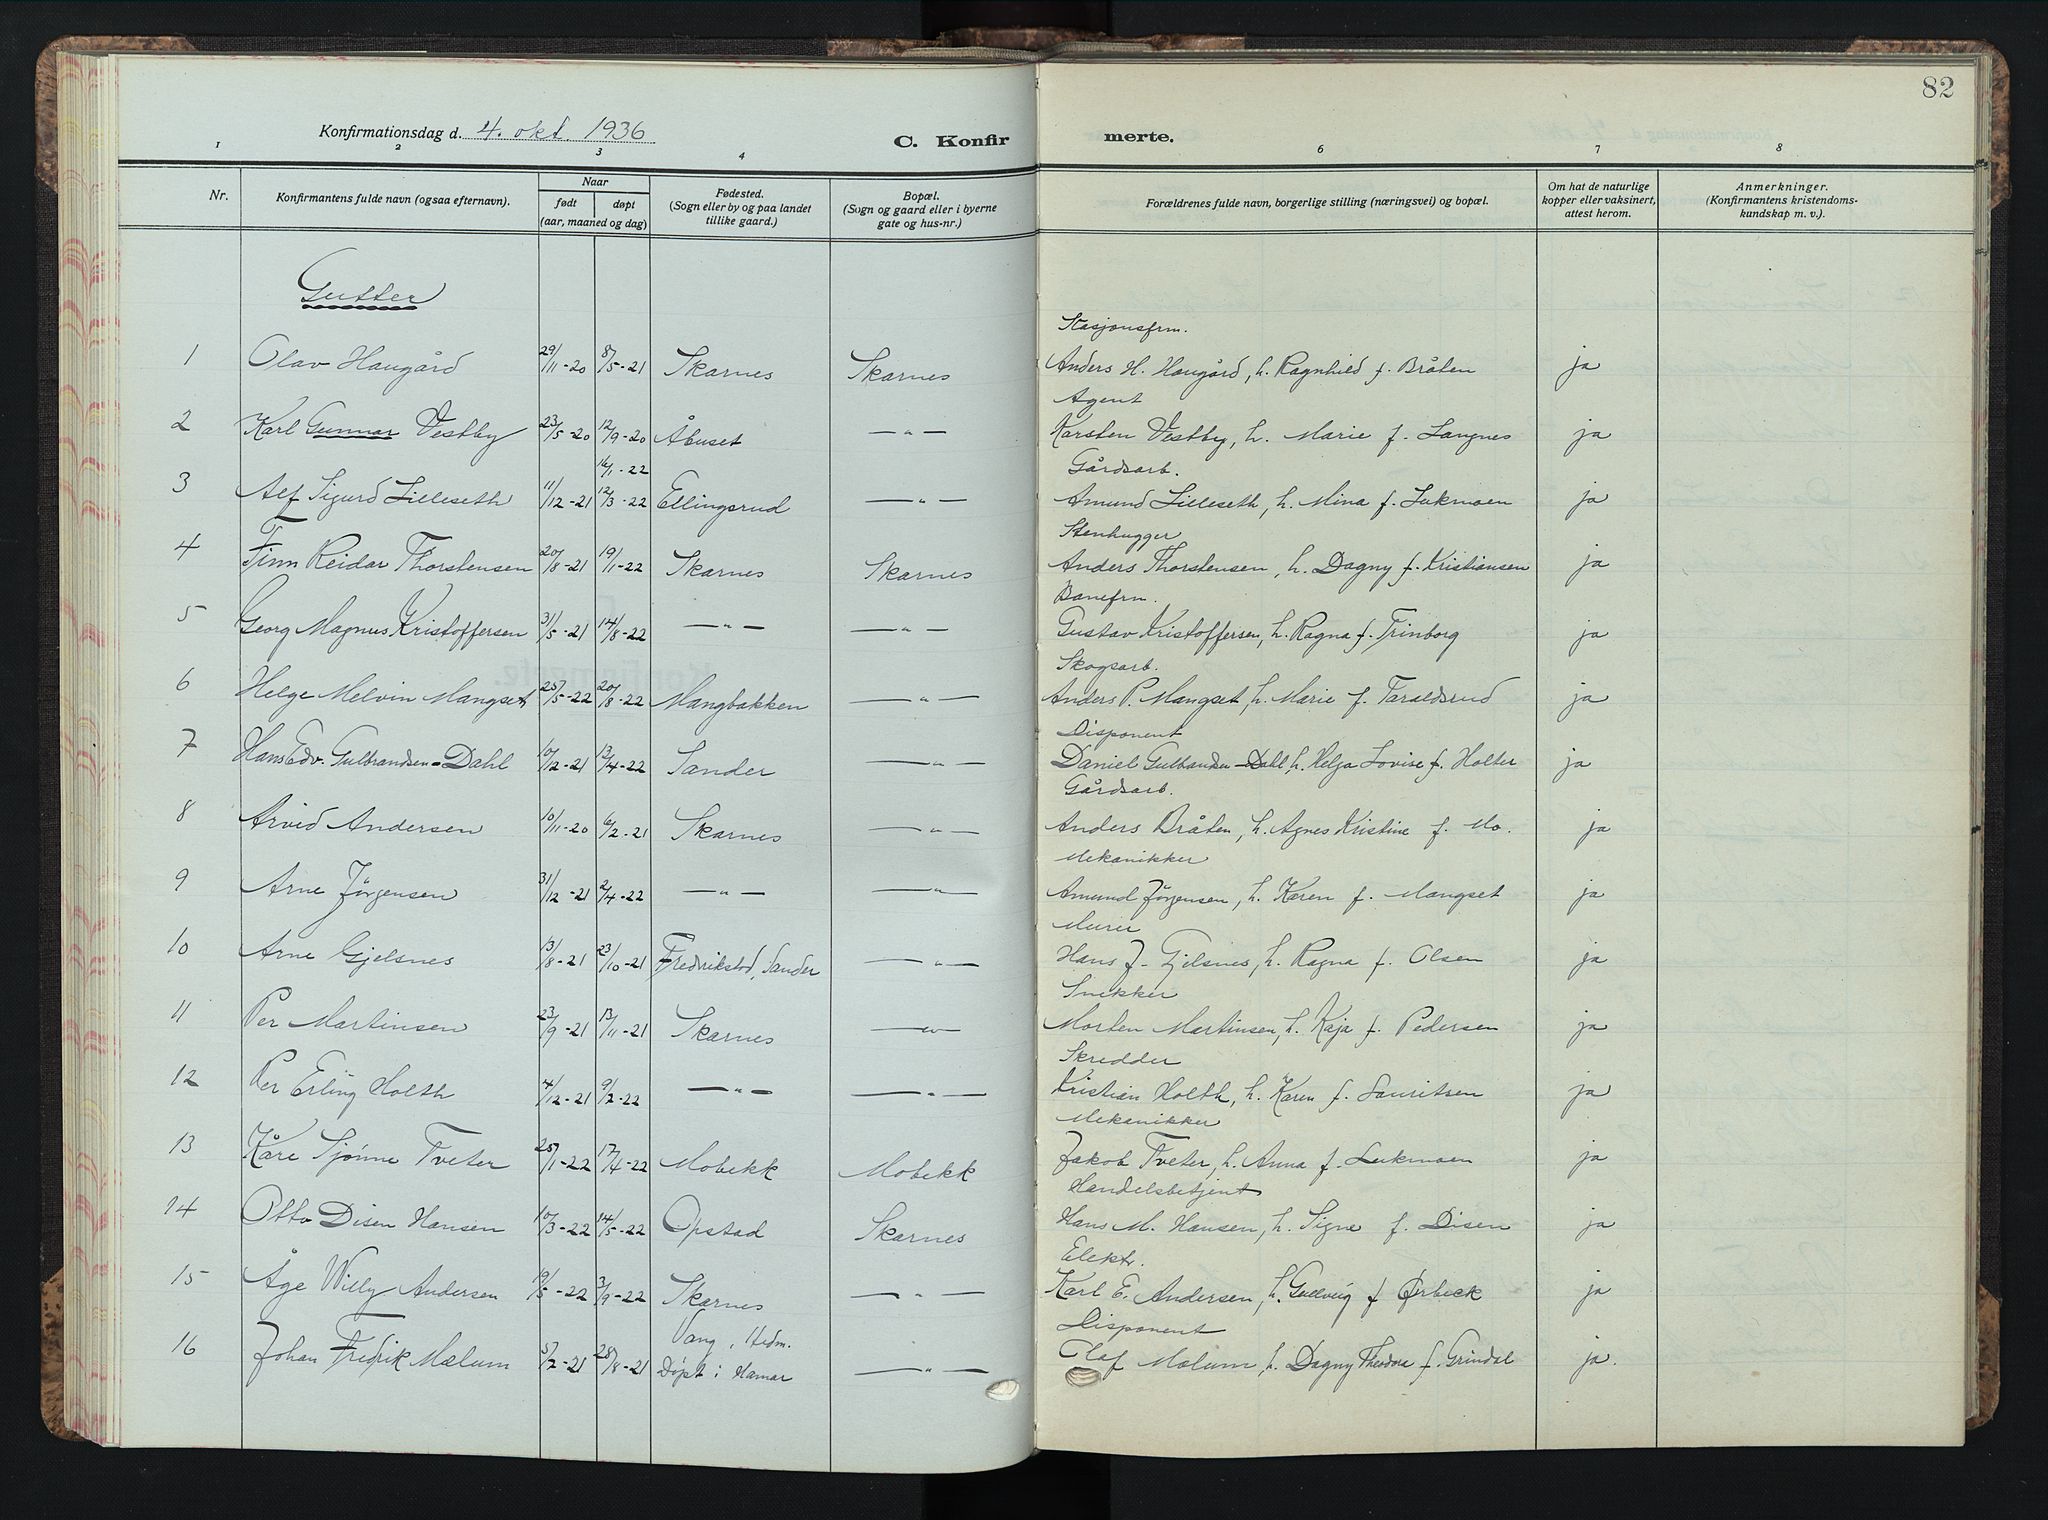 82
Konfirmationsdag d. 4. okt. 1936
C. Konfirmerte.
1 2 3 4 6 7 8
Nr. Konfirmantens fulde navn (ogsaa efternavn). Naar født døpt (aar, maaned og dag) Fødested. (Sogn eller by og paa landet tillike gaard.) Bopæl. (Sogn og gaard eller i byerne gate og hus-nr.) Forældrenes fulde navn, borgerlige stilling (næringsvei) og bopæl. Om hat de naturlige kopper eller vaksinert, attest herom. Anmerkninger. (Konfirmantens kristendomskundskap m. v.)
Gutter
Stasjonsfrm.
1 Olav Haugård 29/11-20 8/5-21 Skarnes Skarnes Anders H. Haugård, h. Ragnhild f. Bråten ja
Agent
2 Karl Gunnar Vestby 23/5-20 12/9-20 Åbuset —„— Karsten Vestby, h. Marie f. Langnes ja
16/1-22 Gårdsarb.
3 Alf Sigurd Lilleseth 11/12-21 12/3-22 Ellingsrud —„— Amund Lilleseth, h. Mina f. Lukmoen ja
Stenhugger
4 Finn Reidar Thorstensen 20/8-21 19/1-22 Skarnes Skarnes Anders Thorstensen, h. Dagny f. Kristiansen ja
Banefrm.
5 Georg Magnus Kristoffersen 31/5-21 14/8-22 —„— —„— Gustav Kristoffersen, h. Ragna f. Trinborg ja
Skogsarb.
6 Helge Melvin Mangset 25/5-22 20/8-22 Mangbakken —„— Anders P. Mangset, h. Marie f. Taraldsrud ja
Disponent
7 Hans Edv. Gulbrandsen-Dahl 10/12-21 13/4-22 Sander —„— Daniel Gulbandsen-Dahl, h. Helga Lovise f. Holter ja
Gårdsarb.
8 Arvid Andersen 10/11-20 6/2-21 Skarnes —„— Anders Bråten, h. Agnes Kristine f. Mo. ja
Mekanikker
9 Arne Jörgensen 31/12-21 2/4-22 —„— —„— Amund Jörgensen, h. Karen f. Mangset ja
Murer
10 Arne Gjelsnes 13/8-21 23/10-21 Fredrikstad, Sander —„— Hans J. Gjelsnes, h. Ragna f. Olsen ja
Snekker
11 Per Martinsen 23/9-21 13/11-21 Skarnes —„— Morten Martinsen, h. Kaja f. Pedersen ja
Skredder
12 Per Erling Holth 4/12-21 9/2-22 —„— —„— Kristian Holth, h. Karen f. Lauritsen ja
Mekanikker
13 Kåre Sjønne Tveter 25/1-22 17/4-22 Mobekk Mobekk Jakob Tveter, h. Anna f. Lukmoen ja
Handelsbetjent
14 Otto Disen Hansen 10/3-22 14/5-22 Opstad Skarnes Hans M. Hansen, h. Signe f. Disen ja
Elektr.
15 Åge Willy Andersen 19/5-22 3/9-22 Skarnes —„— Karl E. Andersen, h. Gullvig f. Ørbeck ja
Vang, Hedm. Disponent
16 Johan Fredrik Mælum 5/7-21 28/8-21 Døpt i Hamar —„— Olaf Mælum, h. Dagny Theodora f. Grindal ja.